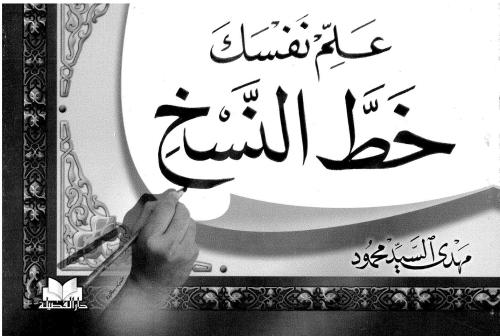 عَلِّمْ نَفْسَكَ
خَطَّ النَّسْخِ
مهدى السيد محمود
دار الفضيلة